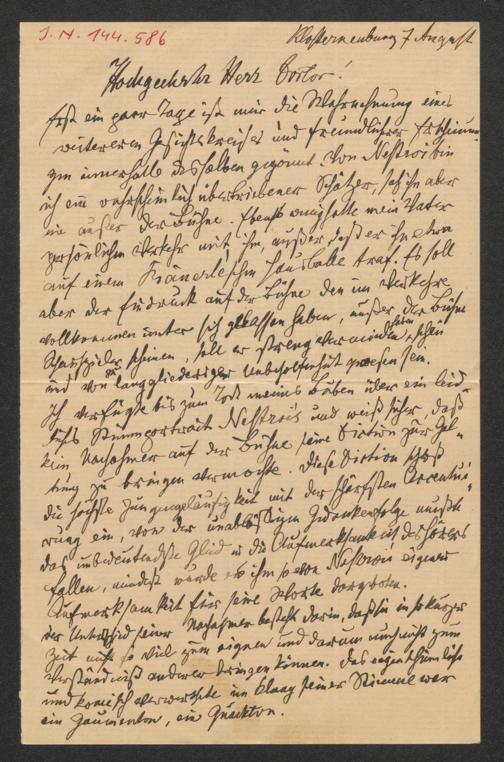 I. N. 144.586
Klosterneuburg 7 August
Hochgeehrter Herr Doctor!
Erst ein paar Tage ist mir die Wahrnehmung eines
weiteren Gesichtskreises und freundlicher
zum innerhalb desselben gegönnt. Von Nestroi bin
ich ein wahrscheinlich übertriebener Schätzer, sah ihn aber
nie außer der Bühne. Ebenso hatte mein Vater
persönlichen Verkehr mit ihm, außer, daß er ihn etwa
auf einem Hausballe traf. Es soll
aber der Eindruck auf der Bühne den im Verkehre
vollkommen unter sich gelassen haben, außer der Bühne
Schauspieler scheinen, soll er streng vermieden haben
und von langgliedriger Unbeholfenheit gewesen sein.
Ich verfügte bis zum Tod meines Buben über ein
Stimmportrait Nestrois und weiß sicher, daß
kein Nachahmer auf der Bühne seine Diction zur Gel-
tung zu bringen vermochte. Diese Diction schloß
die höchste Zungengeläufigkeit mit der schärfsten Accentui-
rung ein, von der unablässigen Gedankenfolge mußte
das unbedeutendste Glied in die Aufmerksamkeit des Hörers
fallen, mindest wurde es ihm so von Nestrois eigener
Aufmerksamkeit für seine Worte dargeboten.
Der Unterschied seiner Nachahmer besteht darin, daß sie in so kurzer
Zeit nicht so viel zum eigenen und darum auch nicht zum
Verständniß anderer bringen können. Das eigenthümlichste
und komisch verwerthete im Klang seiner Stimme war
ein Gaumenton, ein Quäckton.